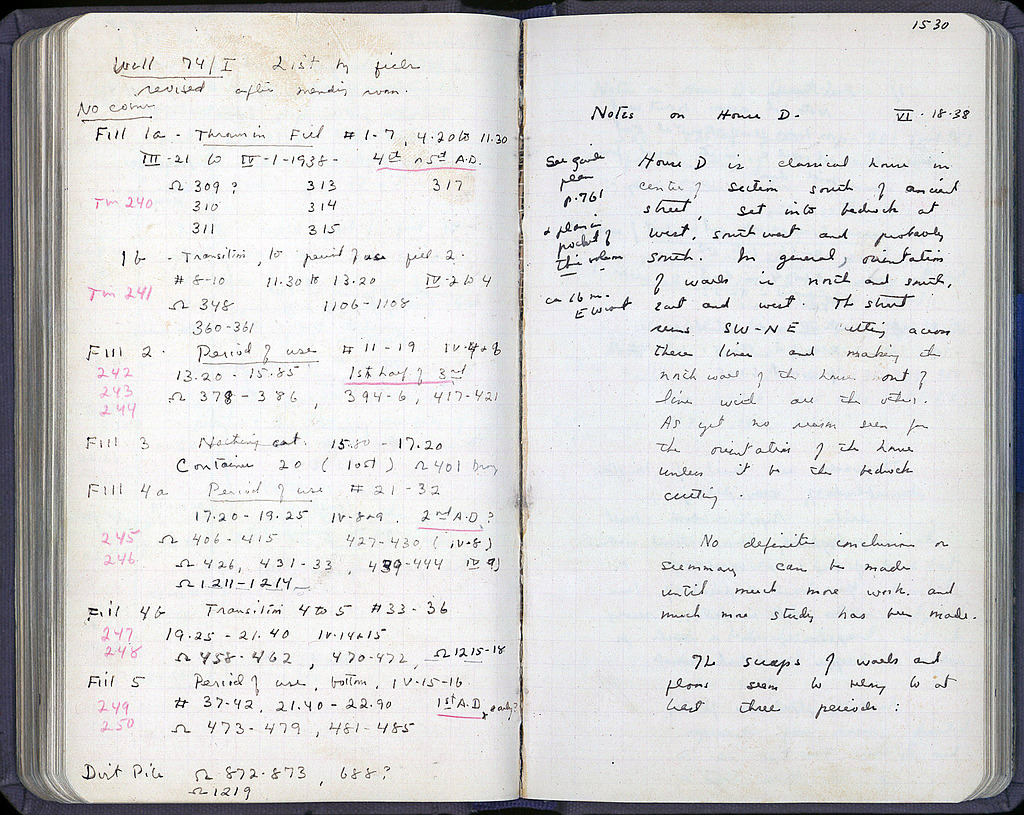 Well 74/I List by fill
revised after mending room.
No coins
Fill 1a - Thrown in Fill # 1-7, 4.20 to 11.30
III-21 to IV-1-1938 - 4th or 5th A.D.
Ω 309 ? 313 317
Tin 240 310 314
311 315
1b - Transition, to period of use fill 2.
# 8-10 11.30 to 13.20 IV-2 to 4
Tin 241
Ω 348 1106-1108
360-361
Fill 2. Period of use # 11-19 IV.4 to 8
242 13.20 - 15.85 1st half of 3rd
243 Ω 378-386, 394-6, 417-421
244
Fill 3 Nothing cat. 15.80 - 17.20
Container 20 (lost) Ω 401
Fill 4a Period of use, # 21-32
17.20 - 19.25 IV-8+9. 2nd A.D.?
245 Ω 406-415 427-430 (IV-8)
246 Ω 426, 431-33, 439-444 IV 9)
Ω 1211-1214
Fill 4b Transition 4 to 5 # 33-36
247 19.25 - 21.40 IV-14+15
248 Ω 458-462, 470-472, Ω 1215-18
Fill 5 Period of use, bottom, IV-15-16.
249 # 37-42, 21.40 - 22.90 1st A.D. + early?
250 Ω 473-479, 481-485
Dirt Pile Ω 872-873, 688?
Ω 1219
1530
Notes on House D- VI-18-38
See guide
plan
p.761
+ plan in
pocket of
this volume
ca 16 m.
E West
House D is classical house in
center of section south of ancient
street, set into bedrock at
west, southwest and probably
south. In general, orientation
of walls is north and south,
east and west. The street
runs SW-NE cutting across
these lines and making the
north wall of the house out of
line with all the others.
As yet no reason seen for
the orientation of the house
unless it be the bedrock
cutting.
No definite conclusion or
summary can be made
until much more work and
much more study has been made.
The scraps of walls and
floors seem to belong to at
least three periods: